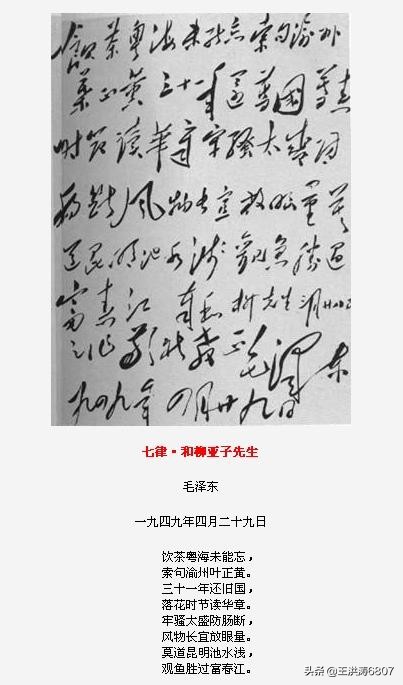 飲茶粤海未能忘索句渝州
葉正黄三十一年還舊國落花
時節讀華章牢騷太盛防
腸斷風物長宜放眼量莫
道昆明池水淺觀魚勝過
富春江 奉和柳先生三月廿八日
之作敬祈教正 毛澤东
一九四九年四月廿九日
七律·和柳亚子先生
毛泽东
一九四九年四月二十九日
饮茶粤海未能忘，
索句渝州叶正黄。
三十一年还旧国，
落花时节读华章。
牢骚太盛防肠断，
风物长宜放眼量。
莫道昆明池水浅，
观鱼胜过富春江。
头条 @王洪涛6807